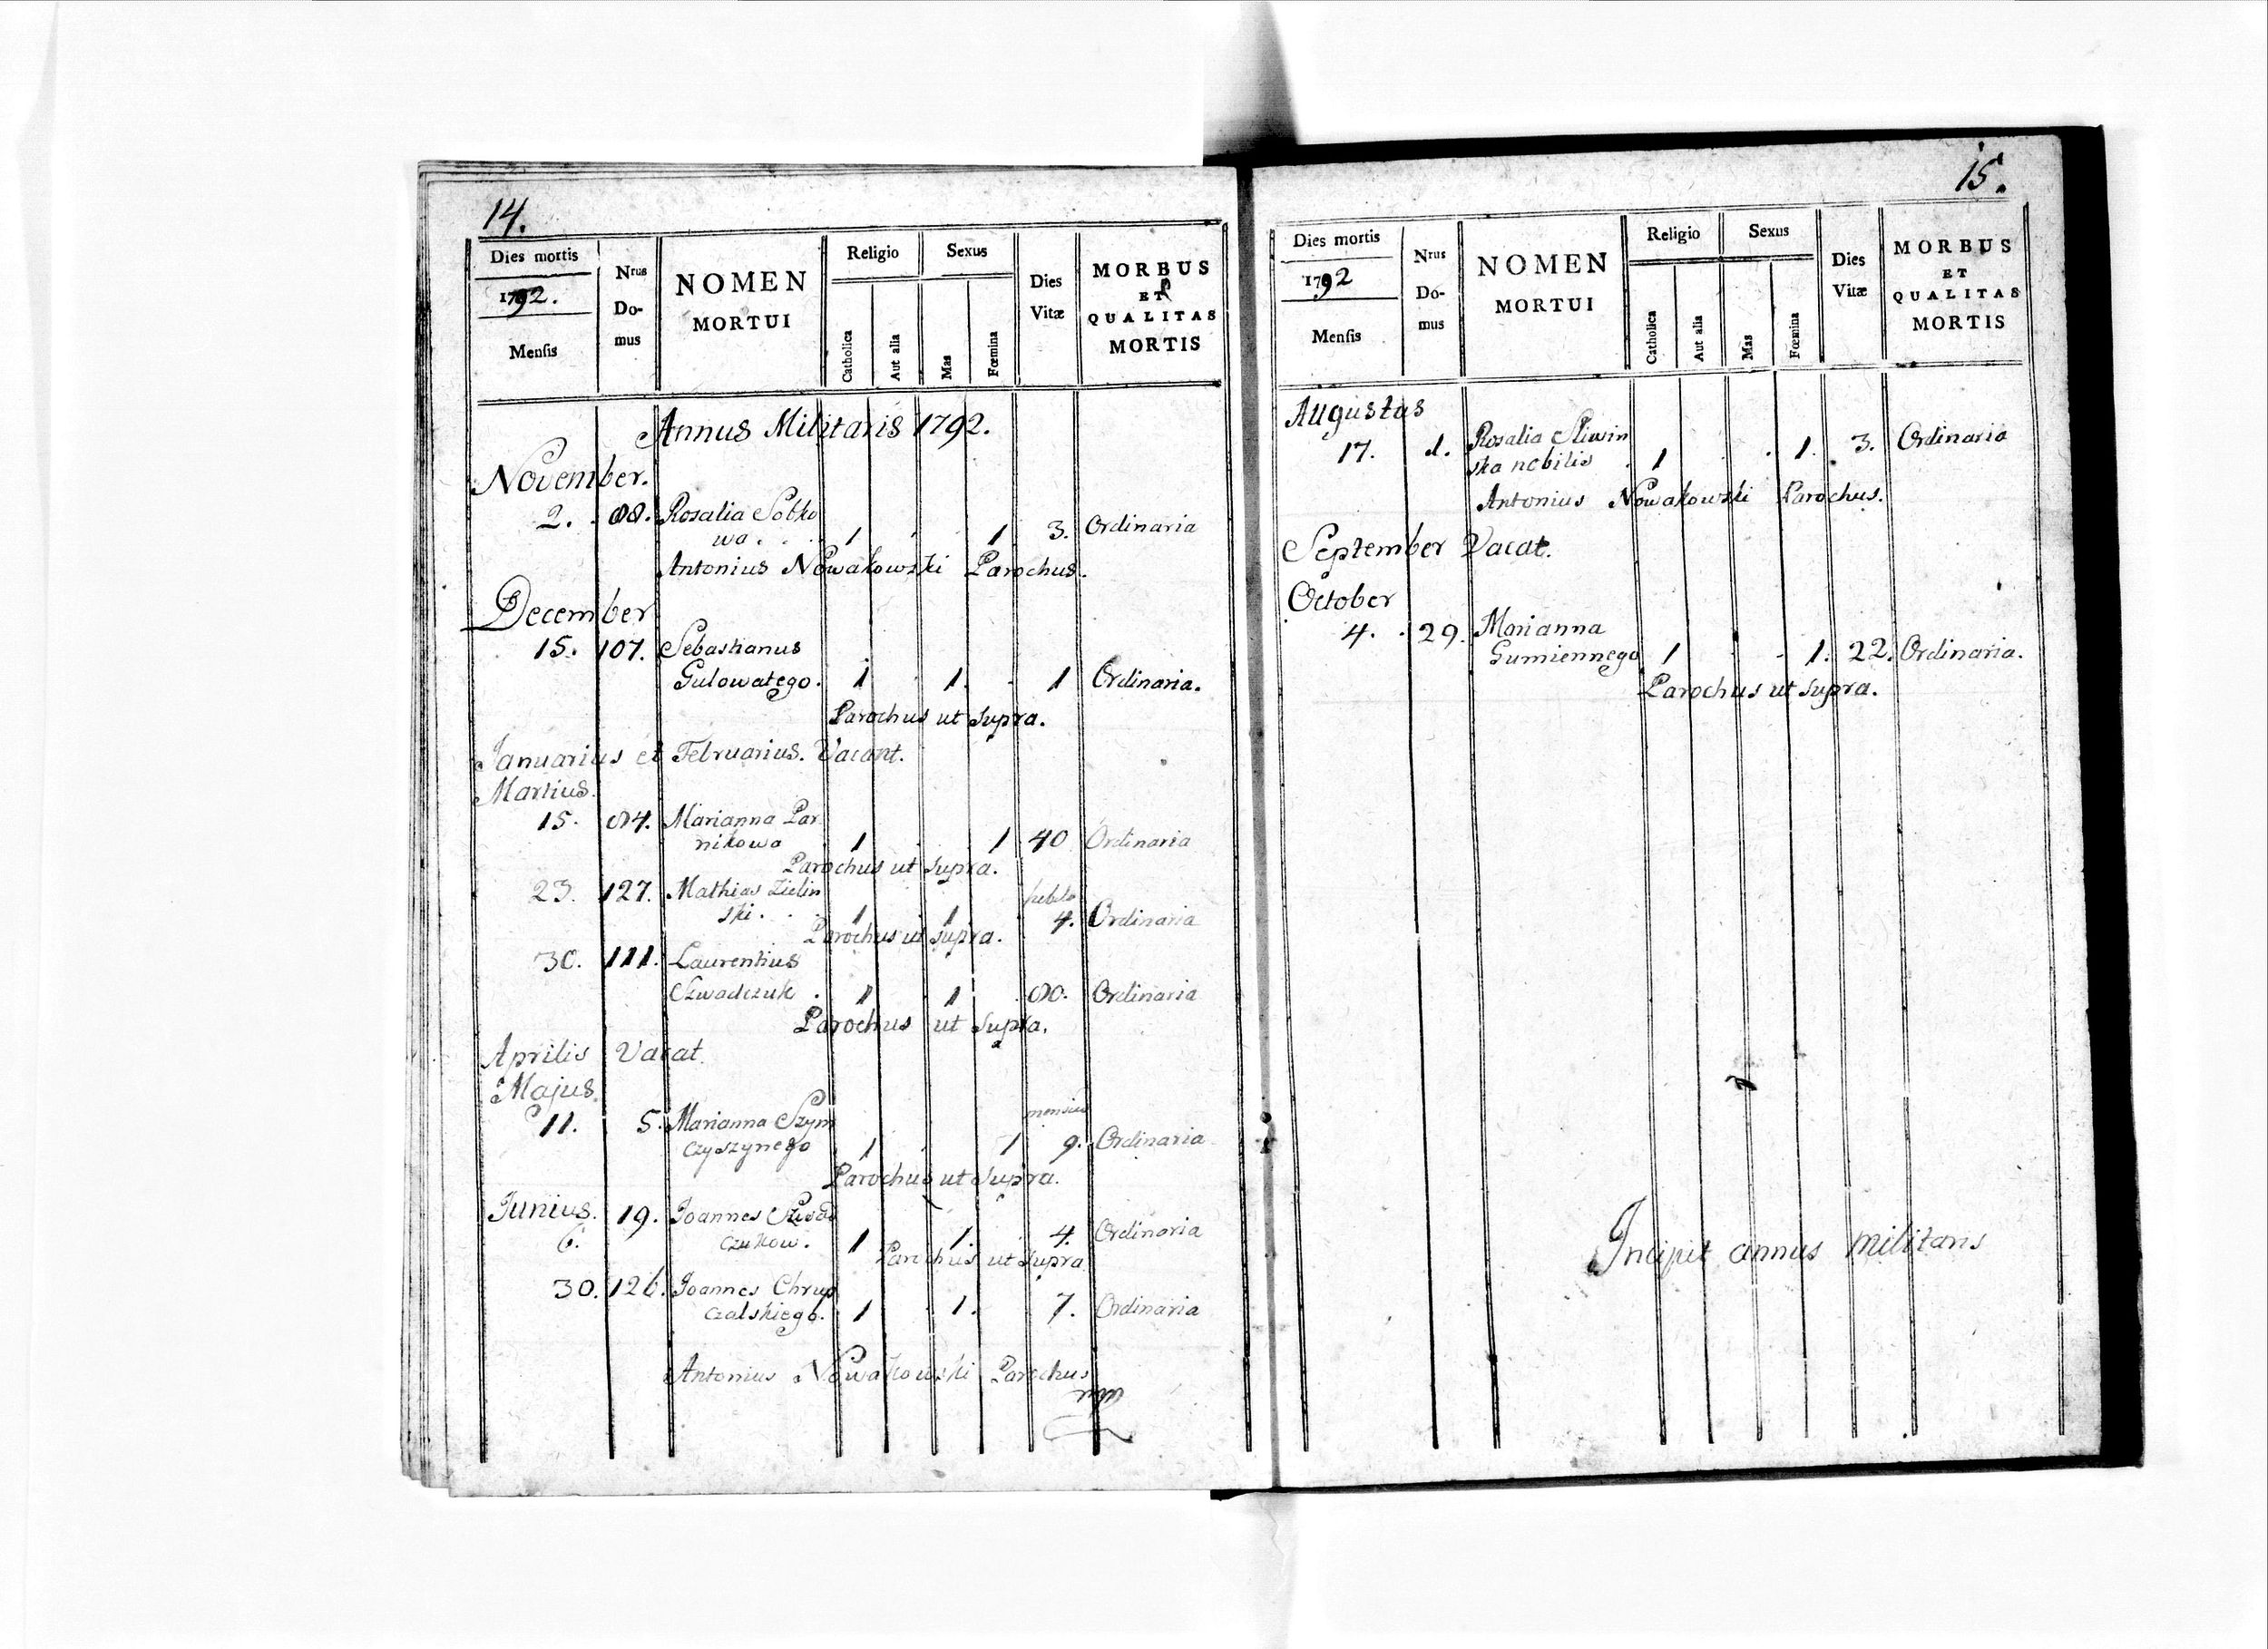 14.
Dies mortis
1792.
Mensis
Nrus
Do-
mus
NOMEN
MORTUI
Religio
Catholica
Aut alia
Sexus
Mas
Fœmina
Dies
Vitæ
MORBUS
ET
QUALITAS
MORTIS
Annus Militaris 1792.
November.
2. 88. Rosalia Sobko
wa . . 1 1 3. Ordinaria
Antonius Nowakowski Parochus.
December
15. 107. Sebastianus
Gulowatego. 1 1. 1 Ordinaria.
Parochus ut supra.
Januarius et Februarius. Vacant.
Martius.
15. 84. Marianna Par
nikowa 1 1 40 Ordinaria
Parochus ut supra.
23. 127. Mathias Zielin
ski. 1 1 4. Ordinaria
Parochus ut supra.
30. 111. Laurentius
Szwadczuk . 1 1 80. Ordinaria
Parochus ut supra.
Aprilis Vacat.
Majus.
11. 5. Marianna Szym
czyszynego 1 1 9. Ordinaria
Parochus ut supra.
Junius. 19. Joannes
6. czukow. 1 1. 4. Ordinaria
Parochus ut supra
30. 126. Joannes Chrup
czalskiego. 1 1. 7. Ordinaria
Antonius Nowakowski Parochus
mp
15.
Dies mortis
1792
Mensis
Nrus
Do-
mus
NOMEN
MORTUI
Religio
Catholica
Aut alia
Sexus
Mas
Fœmina
Dies
Vitæ
MORBUS
ET
QUALITAS
MORTIS
Augustus
17. 1. Rosalia Sliwin
ska nobilis 1 1. 3. Ordinaria
Antonius Nowakowski Parochus.
September Vacat.
October
4. 29. Marianna
Gumiennego 1 1. 22. Ordinaria.
Parochus ut supra.
Incipit annus militaris